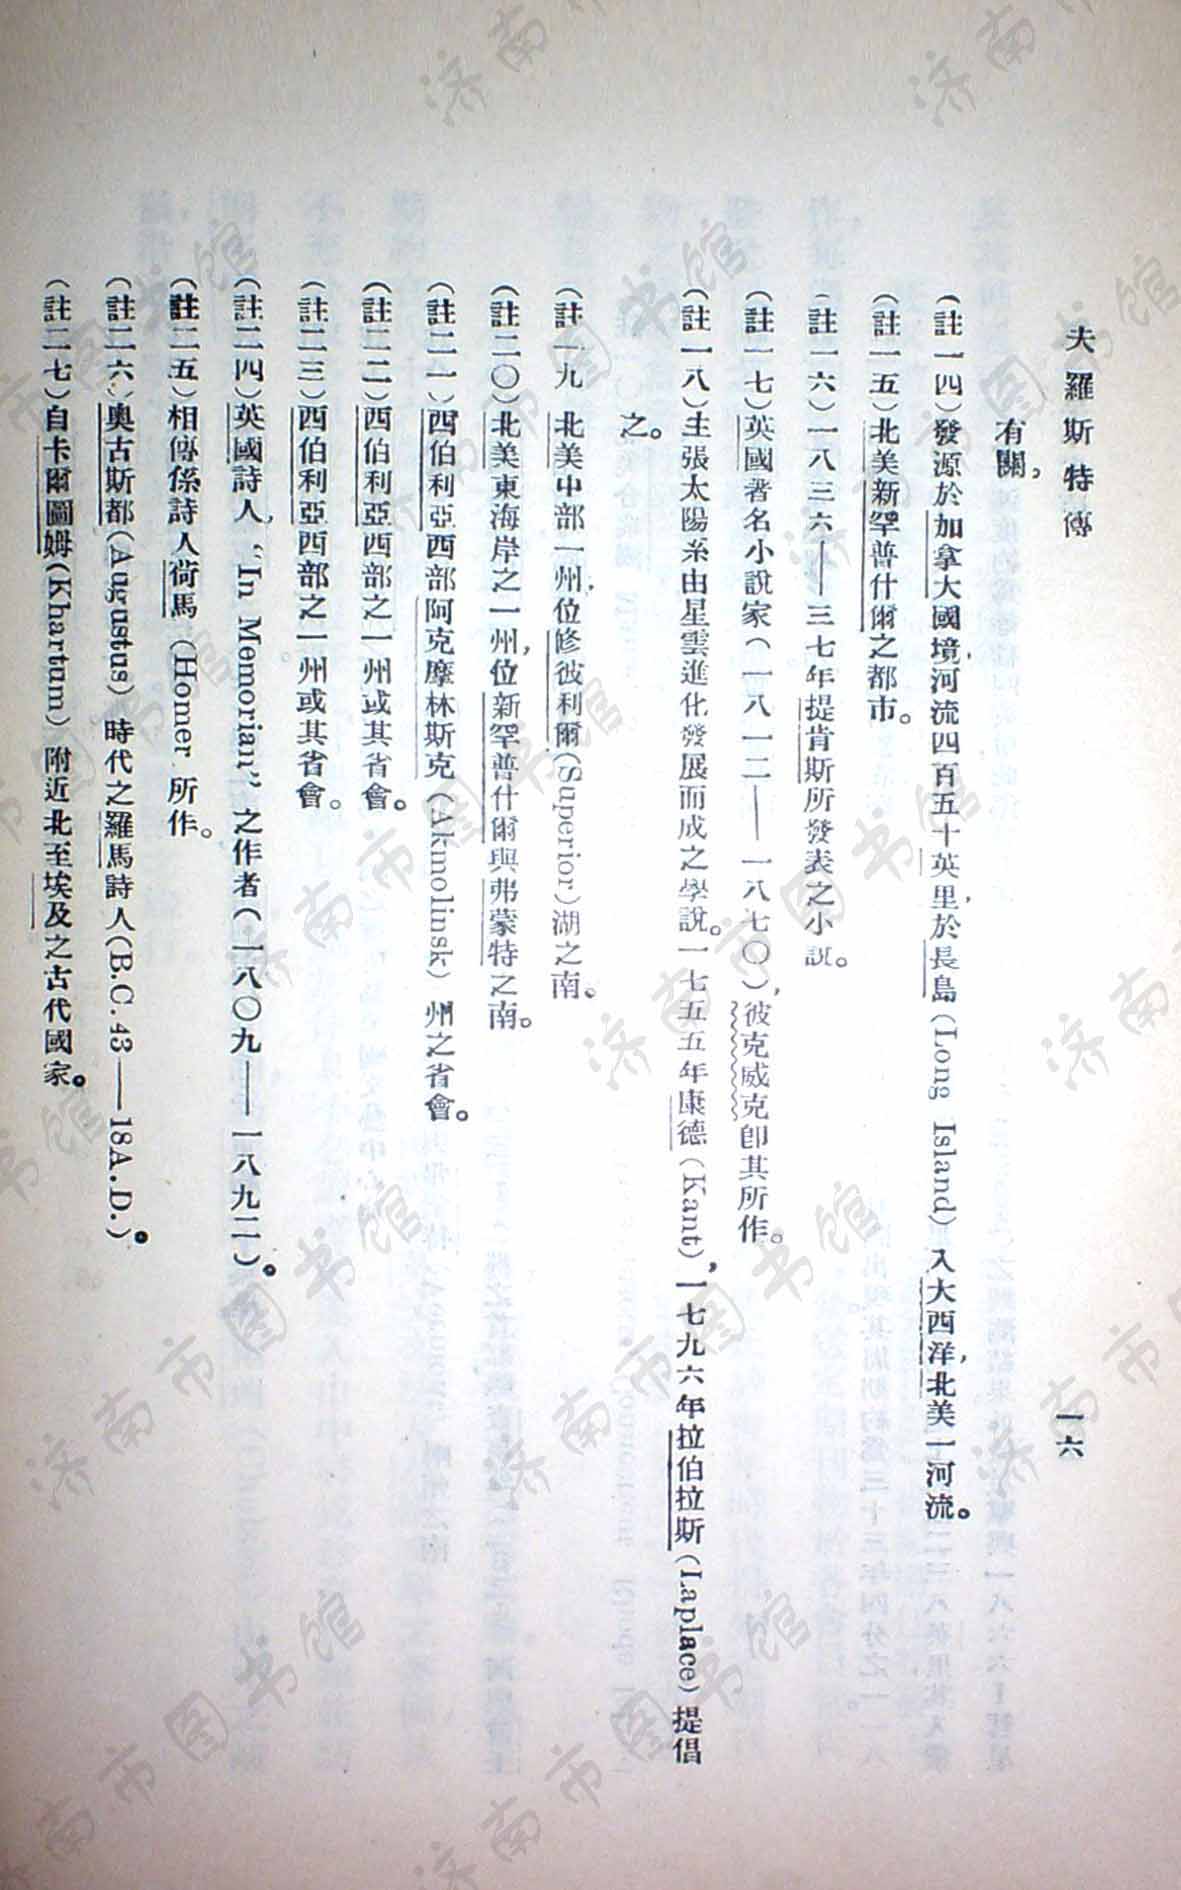 夫羅斯特傳
一六
有關，
（註一四）發源於加拿大國境，河流四百五十英里，於長島（Long Island）入大西洋，北美一河流。
（註一五）北美新罕普什爾之都市。
（註一六）一八三六——三七年提肯斯所發表之小說。
（註一七）英國著名小說家（一八一二——一八七〇），彼克威克卽其所作。
（註一八）主張太陽系由星雲進化發展而成之學說。一七五五年康德（Kant），一七九六年拉伯拉斯（Laplace）提倡
之。
（註一九 北美中部一州，位修彼利爾（Superior）湖之南。
（註二〇）北美東海岸之一州，位新罕普什爾與弗蒙特之南。
（註二一）西伯利亞西部阿克摩林斯克（Akmolinsk）州之省會。
（註二二）西伯利亞西部之一州或其省會。
（註二三）西伯利亞西部之一州或其省會。
（註二四）英國詩人，“In Memorian”之作者（一八〇九——一八九二）。
（註二五）相傳係詩人荷馬（Homer 所作。
（註二六）奧古斯都（Augustus）時代之羅馬詩人（B.C.43——18A.D.）。
（註二七）自卡爾圖姆（Khartum）附近北至埃及之古代國家。
济南市图书馆